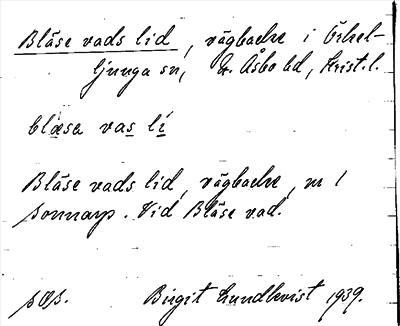 Blåse vads lid, vägbacke i Örkel-
ljunga sn, N. Åsbo hd, Krist. l.
blåsa vas lí
Blåse vads lid, vägbacke, n 1
Sonnarp. Vid Blåse vad.
Birgit Lundkvist 1939.